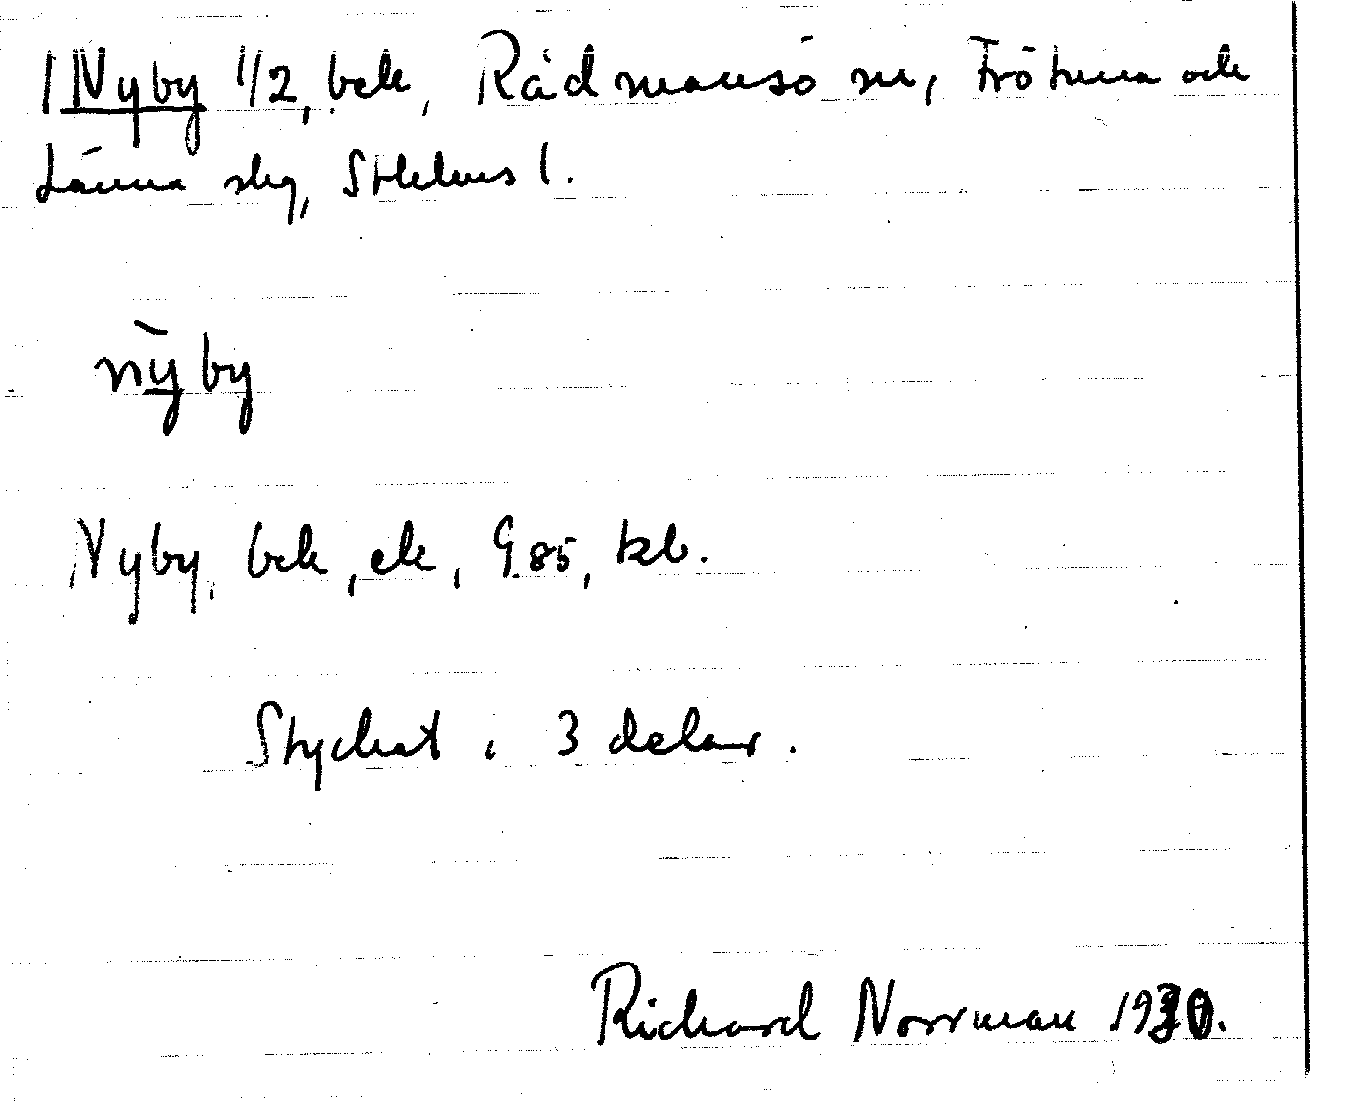 1 Nyby 1/2, bek, Rådmansö sn, Frötuna och
Länna slg, Sthlms l.
nỳby
Nyby, bek, ek, G.85, kb.
Styckat i 3 delar.
Richard Norrman 1930.